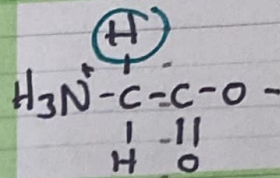 H
H₃N⁺-C-C-O-
H O